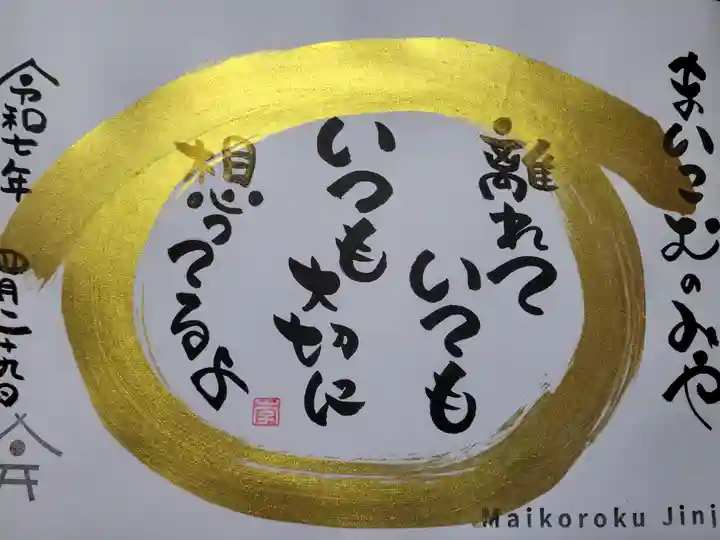 まいころくのみや
離れて
いても
いつも
大切に
想ってるよ
令和七年 四月二十九日
Maikoroku Jinj